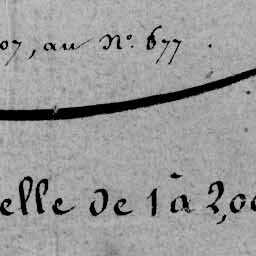 07, au N.º 677.
elle de 1 à 2,00